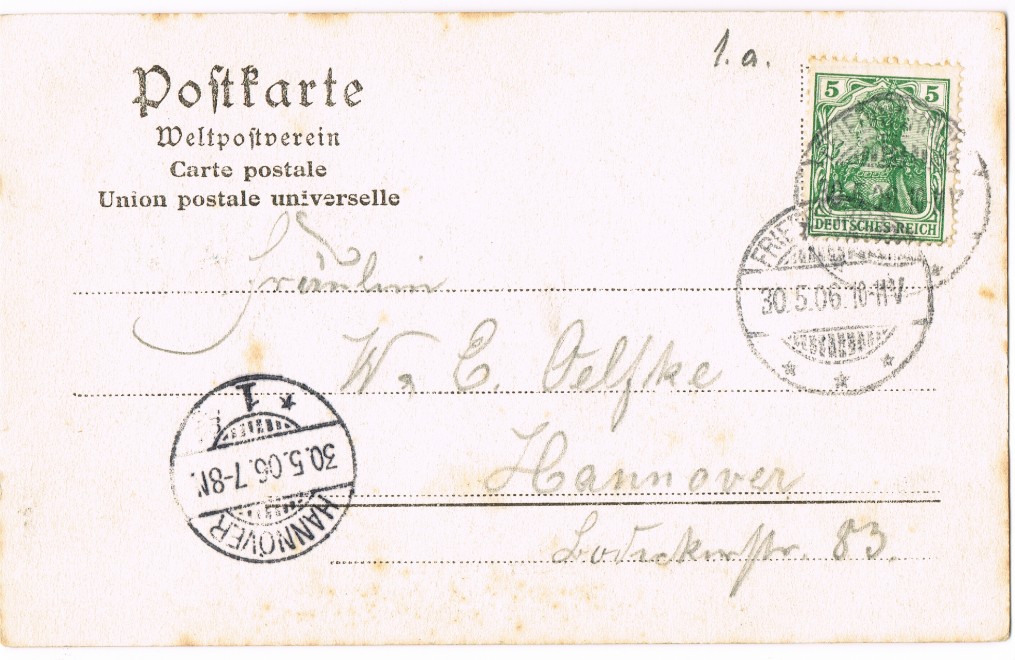 Postkarte
Weltpostverein
Carte postale
Union postale universelle
1. a.
5 5
DEUTSCHES REICH
30.5.06.10-11V
Fräulein
W. E. Oelfke
Hannover
83.
HANNOVER
30.5.06.7-8N
1